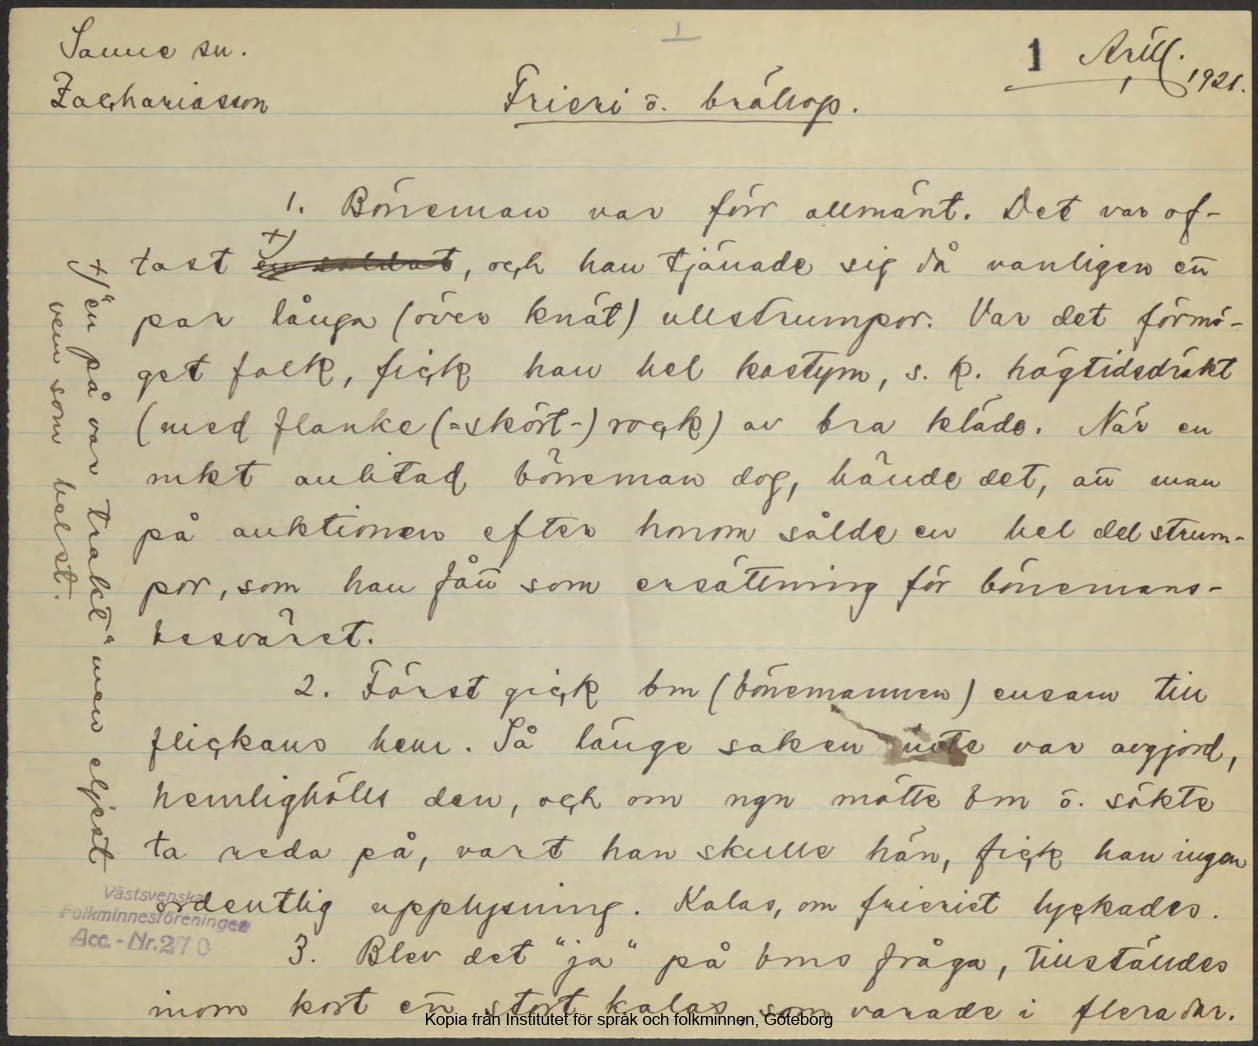 Sanne sn.
Zachariasson
1
1 April.
1921.
Frieri o. bröllop.
1. Böneman var förr allmänt. Det var of-
tast x) en soldat, och han tjänade sig då vanligen ett
par långa (över knät) ullstrumpor. Var det förmö-
get folk, fick han hel kostym, s. k. högtidsdräkt
(med flanke (=skört-) rock) av bra kläde. När en
mkt anlitad böneman dog, hände det, att man
på auktionen efter honom sålde en hel del strum-
por, som han fått som ersättning för bönemans-
besväret.
2. Först gick bm (bönemannen) ensam till
flickans hem. Så länge saken inte var avgjord,
hemlighölls den, och om ngn mötte bm o. sökte
ta reda på, vart han skulle hän, fick han ingen
ordentlig upplysning. Kalas, om frieriet lyckades.
3. Blev det "ja" på bms fråga, tillställdes
inom kort ett stort kalas, som varade i flera dar.
x) "en på var trakt" men eljest
vem som helst.
Västsvenska
Folkminnesföreningen
Acc.-Nr. 270
Kopia från Institutet för språk och folkminnen, Göteborg